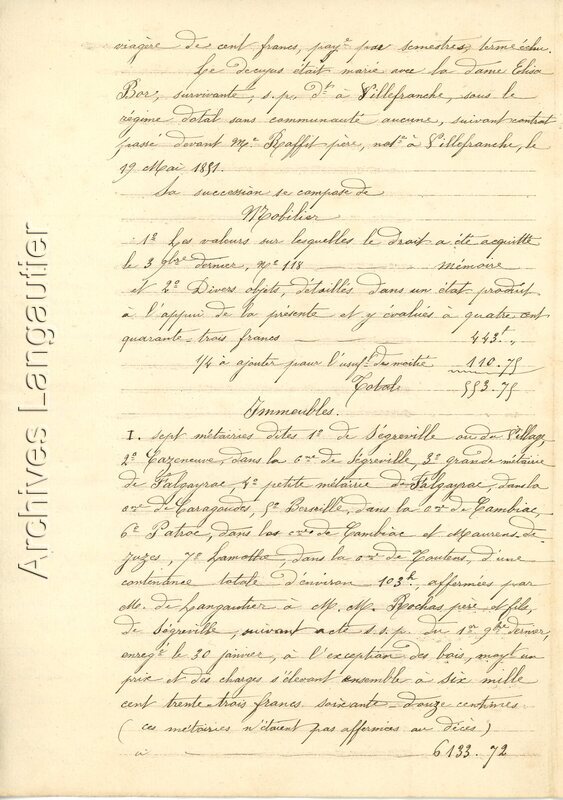 viagère de cent francs, pay.e par semestres, terme échu.
Le decujus était marié avec la dame Elisa
Bor, survivante, s.p. dt à Villefranche, sous le
régime dotal sans communauté aucune, suivant contrat
passé devant Me Raffit père, not.e à Villefranche, le
19 Mai 1851.
Sa succession se compose de
Mobilier
1o Les valeurs sur lesquelles le droit a été acquitté
le 3 9bre dernier, no 118 mémoire
et 2o Divers objets, détaillés dans un état produit
à l'appui de la présente et y évalués à quatre cent
quarante-trois francs 443f „
1/4 à ajouter pour l'usuft de moitié 110.75
Totale 553.75
Immeubles.
I. sept métairies dites 1o de Ségreville ou du Village,
2o Cazeneuve, dans la cne de Ségreville, 3o grande métairie
de Falgayrac, 4o petite métairie de Falgayrac, dans la
cne de Caragoudes, 5o Berville, dans la cne de Cambiac,
6o Patrac, dans les cnes de Cambiac et Maurens de
Juzes, 7o Lamothe, dans la cne de Toutens, d'une
contenance totale d'environ 103h, affermées par
M. de Langautier à M.M. Rochas père et fils,
de Ségreville, suivant acte s.s.p. du 1er 9bre dernier,
enregé le 30 janvier, à l'exception des bois, moyt un
prix et des charges s'élevant ensemble à six mille
cent trente-trois francs soixante-douze centimes
(ces métairies n'étaient pas affermées au décès)
à 6133.72
Archives Langautier